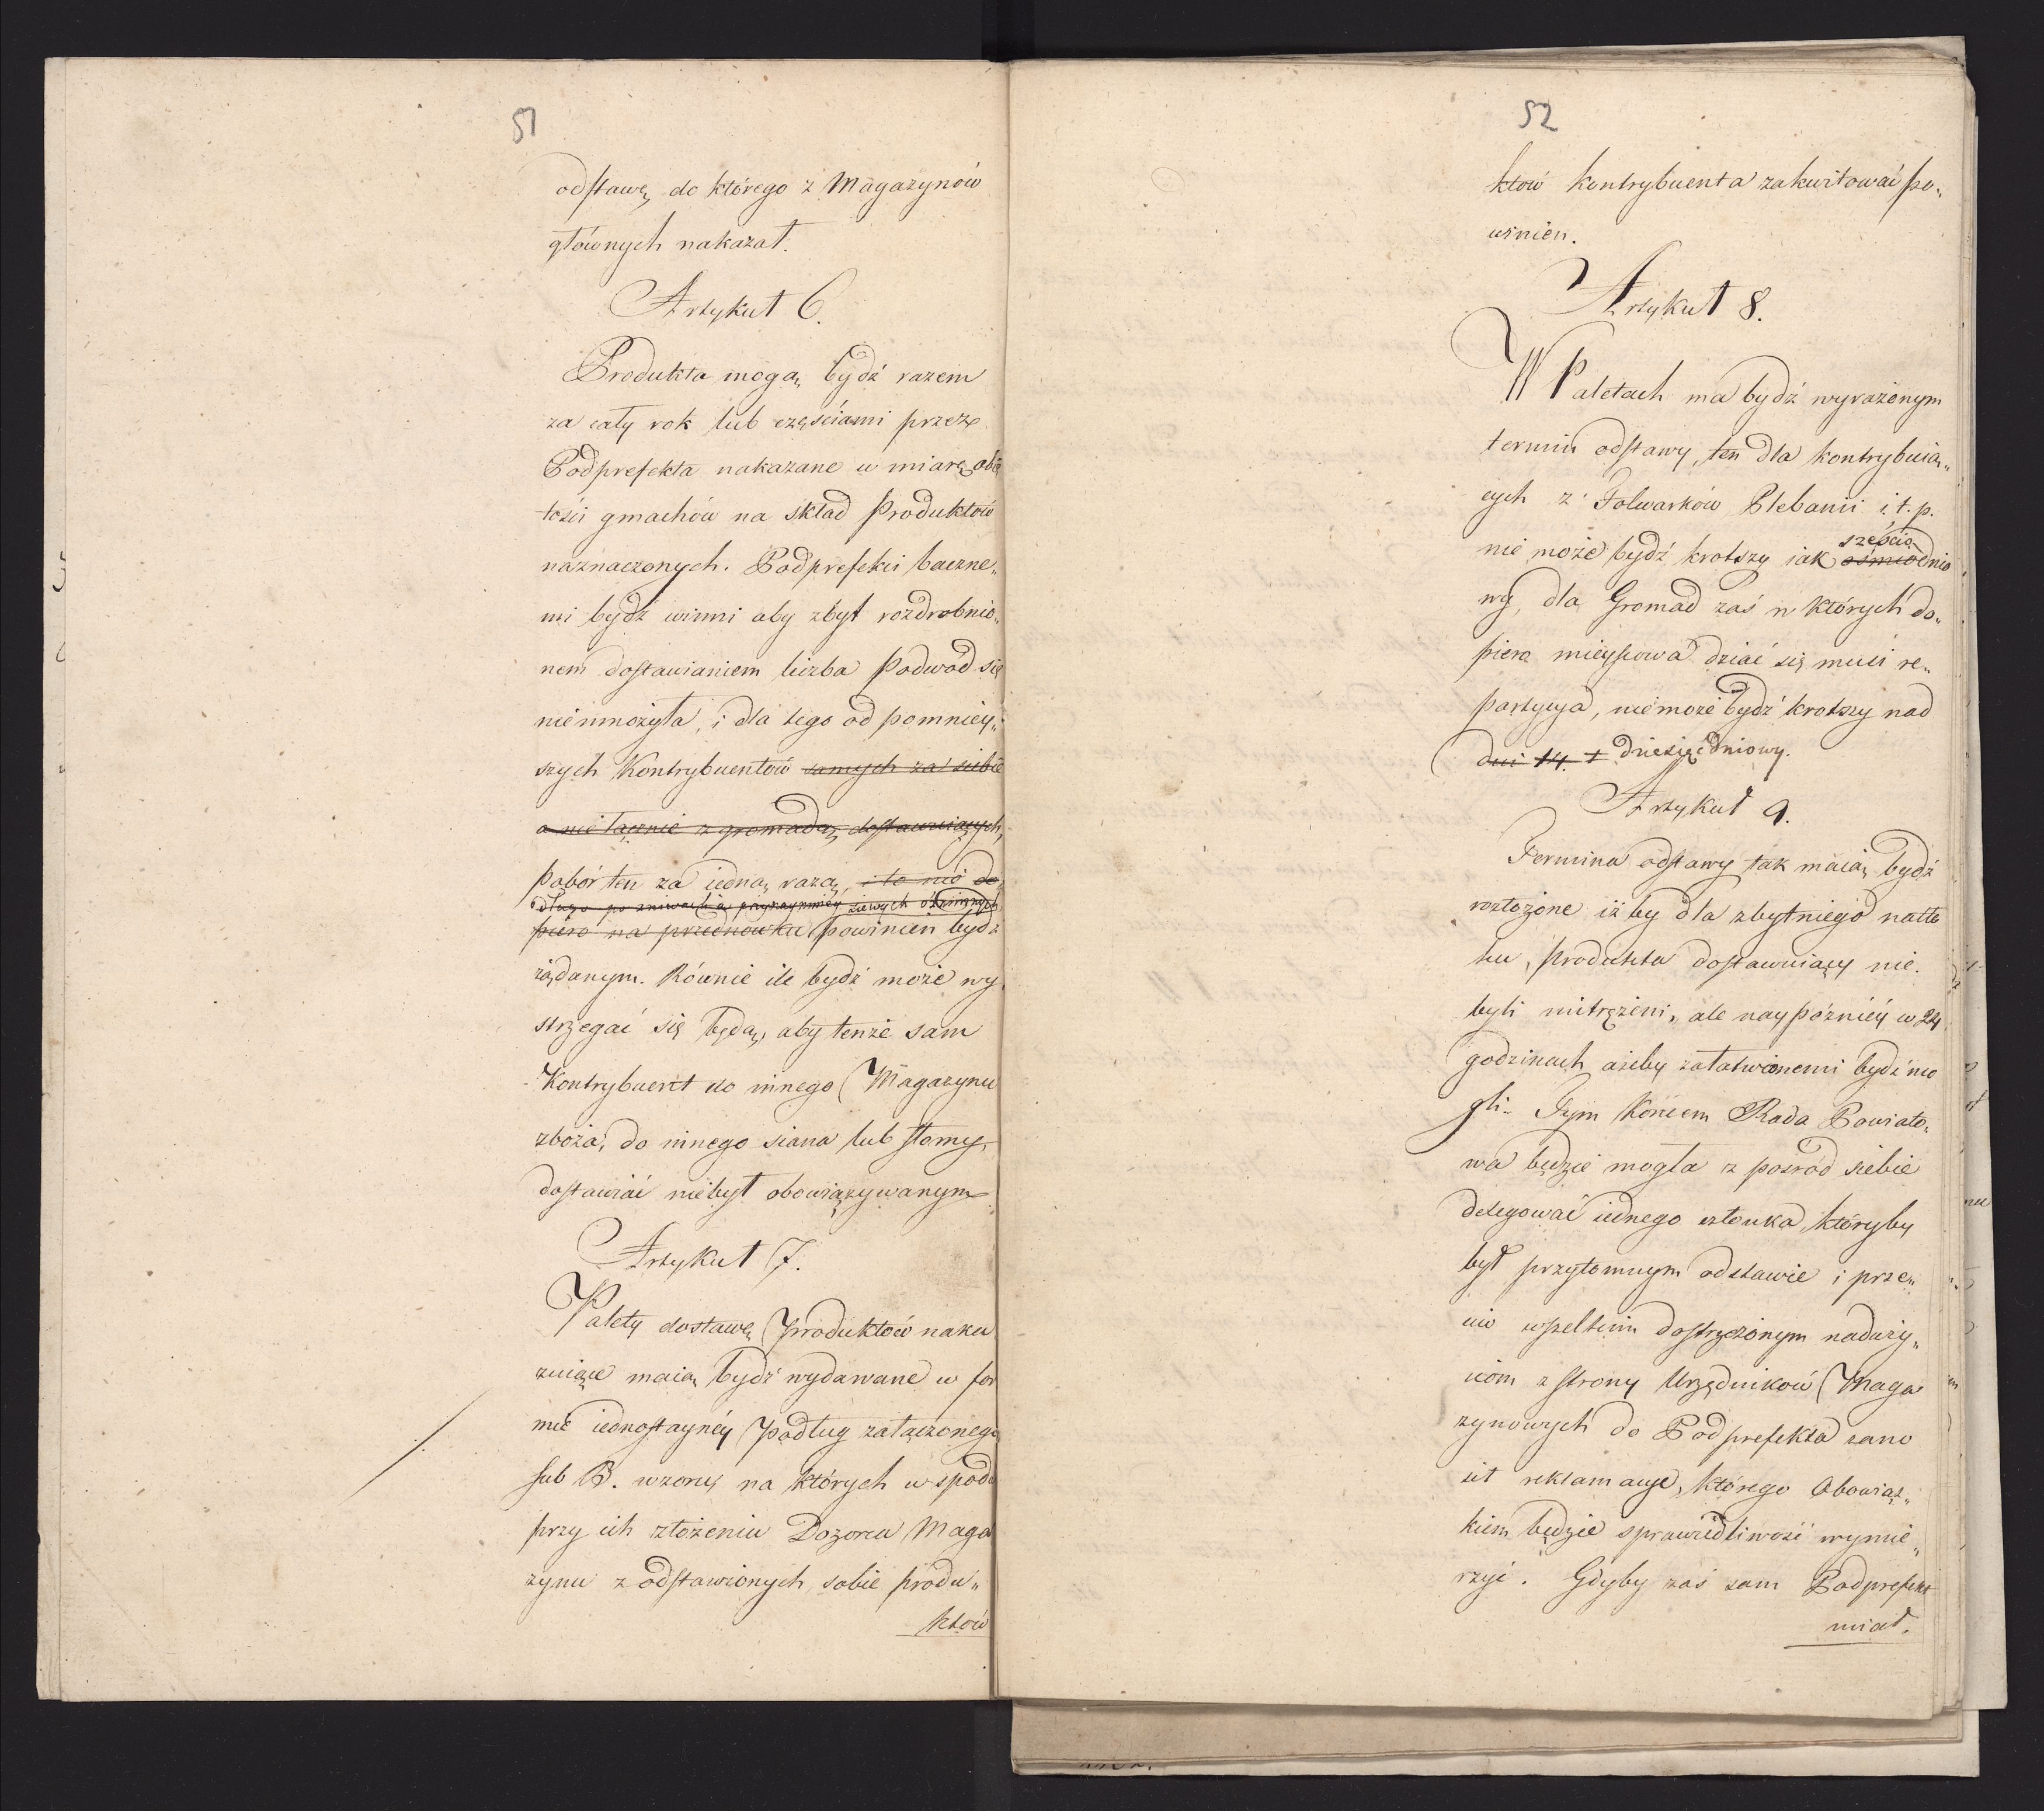 51
odstawę do którego z Magazynów
głównych nakazał.
Artykuł 6.
Produkta mogą bydź razem
za cały rok lub częściami przez
Podprefekta nakazane w miarę obię
tości gmachów na skład Produktów
naznaczonych. Podprefekci baczne„
mi bydź winni aby zbyt rozdrobnio„
nem dostawianiem liczba Podwód się
niemnożyła, i dla tego od pomniey„
szych Kontrybuentów samych za siebie
a nie łącznie z gromadą dostawuiących,
pobór ten za iedną razą, i to nie do„
długo po żniwach a przynaymniey siewych ozimnych
piero na przednówku powinien bydź
żądanym. Równie ile bydź może wy
strzegać się będą, aby tenże sam
Kontrybuent do innego Magazynu
zboża, do innego siana lub słomy
dostawiać niebył obowiązywanym
Artykuł 7.
Palety dostawę produktów naka
zuiące maią bydź wydawane w for
mie iednostayney podług załączonego
sub B. wzoru, na których w spodu
przy ich złożeniu Dozorca Maga
zynu z odstawionych sobie produ„
któw
52
któw kontrybuenta zakwitować po„
winien.
Artykuł 8.
W Paletach ma bydź wyrażonym
termin odstawy, ten dla kontrybuią„
cych z Folwarków Plebanii i.t.p.
sześcio
nie może bydź krotszy iak ośmiodnio
wy, dla Gromad zaś w których do„
piero mieyscowa dziać się musi re„
partycya, niemoże bydź krotszy nad
dni 14. + dziesięćdniowy.
Artykuł 9.
Termina odstawy tak maią bydź
rozłożone iż by dla zbytniego natło
ku, produkta dostawuiący nie
byli mitrężeni, ale naypóźniéy w 24
godzinach ażeby załatwionemi bydź mo
gli. Tym Końcem Rada Powiato„
wa będzie mogła z pośród siebie
delegować iednego członka, któryby
był przytomnym odstawie i prze„
ciw wszelkim dostrzeżonym nadużyć„
ciom z strony Urzędników Maga
zynowych do Podprefekta zano
sił reklamacye, którego Obowiąz„
kiem będzie sprawiedliwość wymie„
rzyć. Gdyby zaś sam Podprefekt
miał.